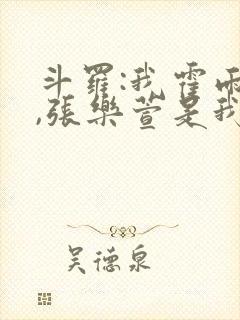 斗羅:我霍雨
,張樂萱是我
吴德泉